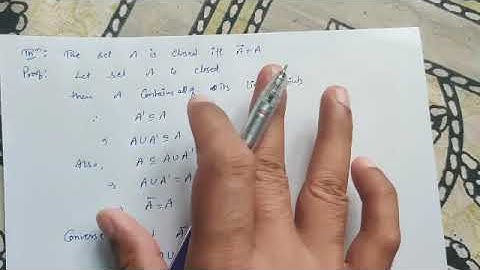 Thm: The set A is closed iff Ā = A
Proof: Let set A is closed
then A contains all of its
∴ A' ⊆ A
⇒ A∪A' ⊆ A
Also, A ⊆ A∪A'
⇒ A∪A' = A
Ā = A
Converse